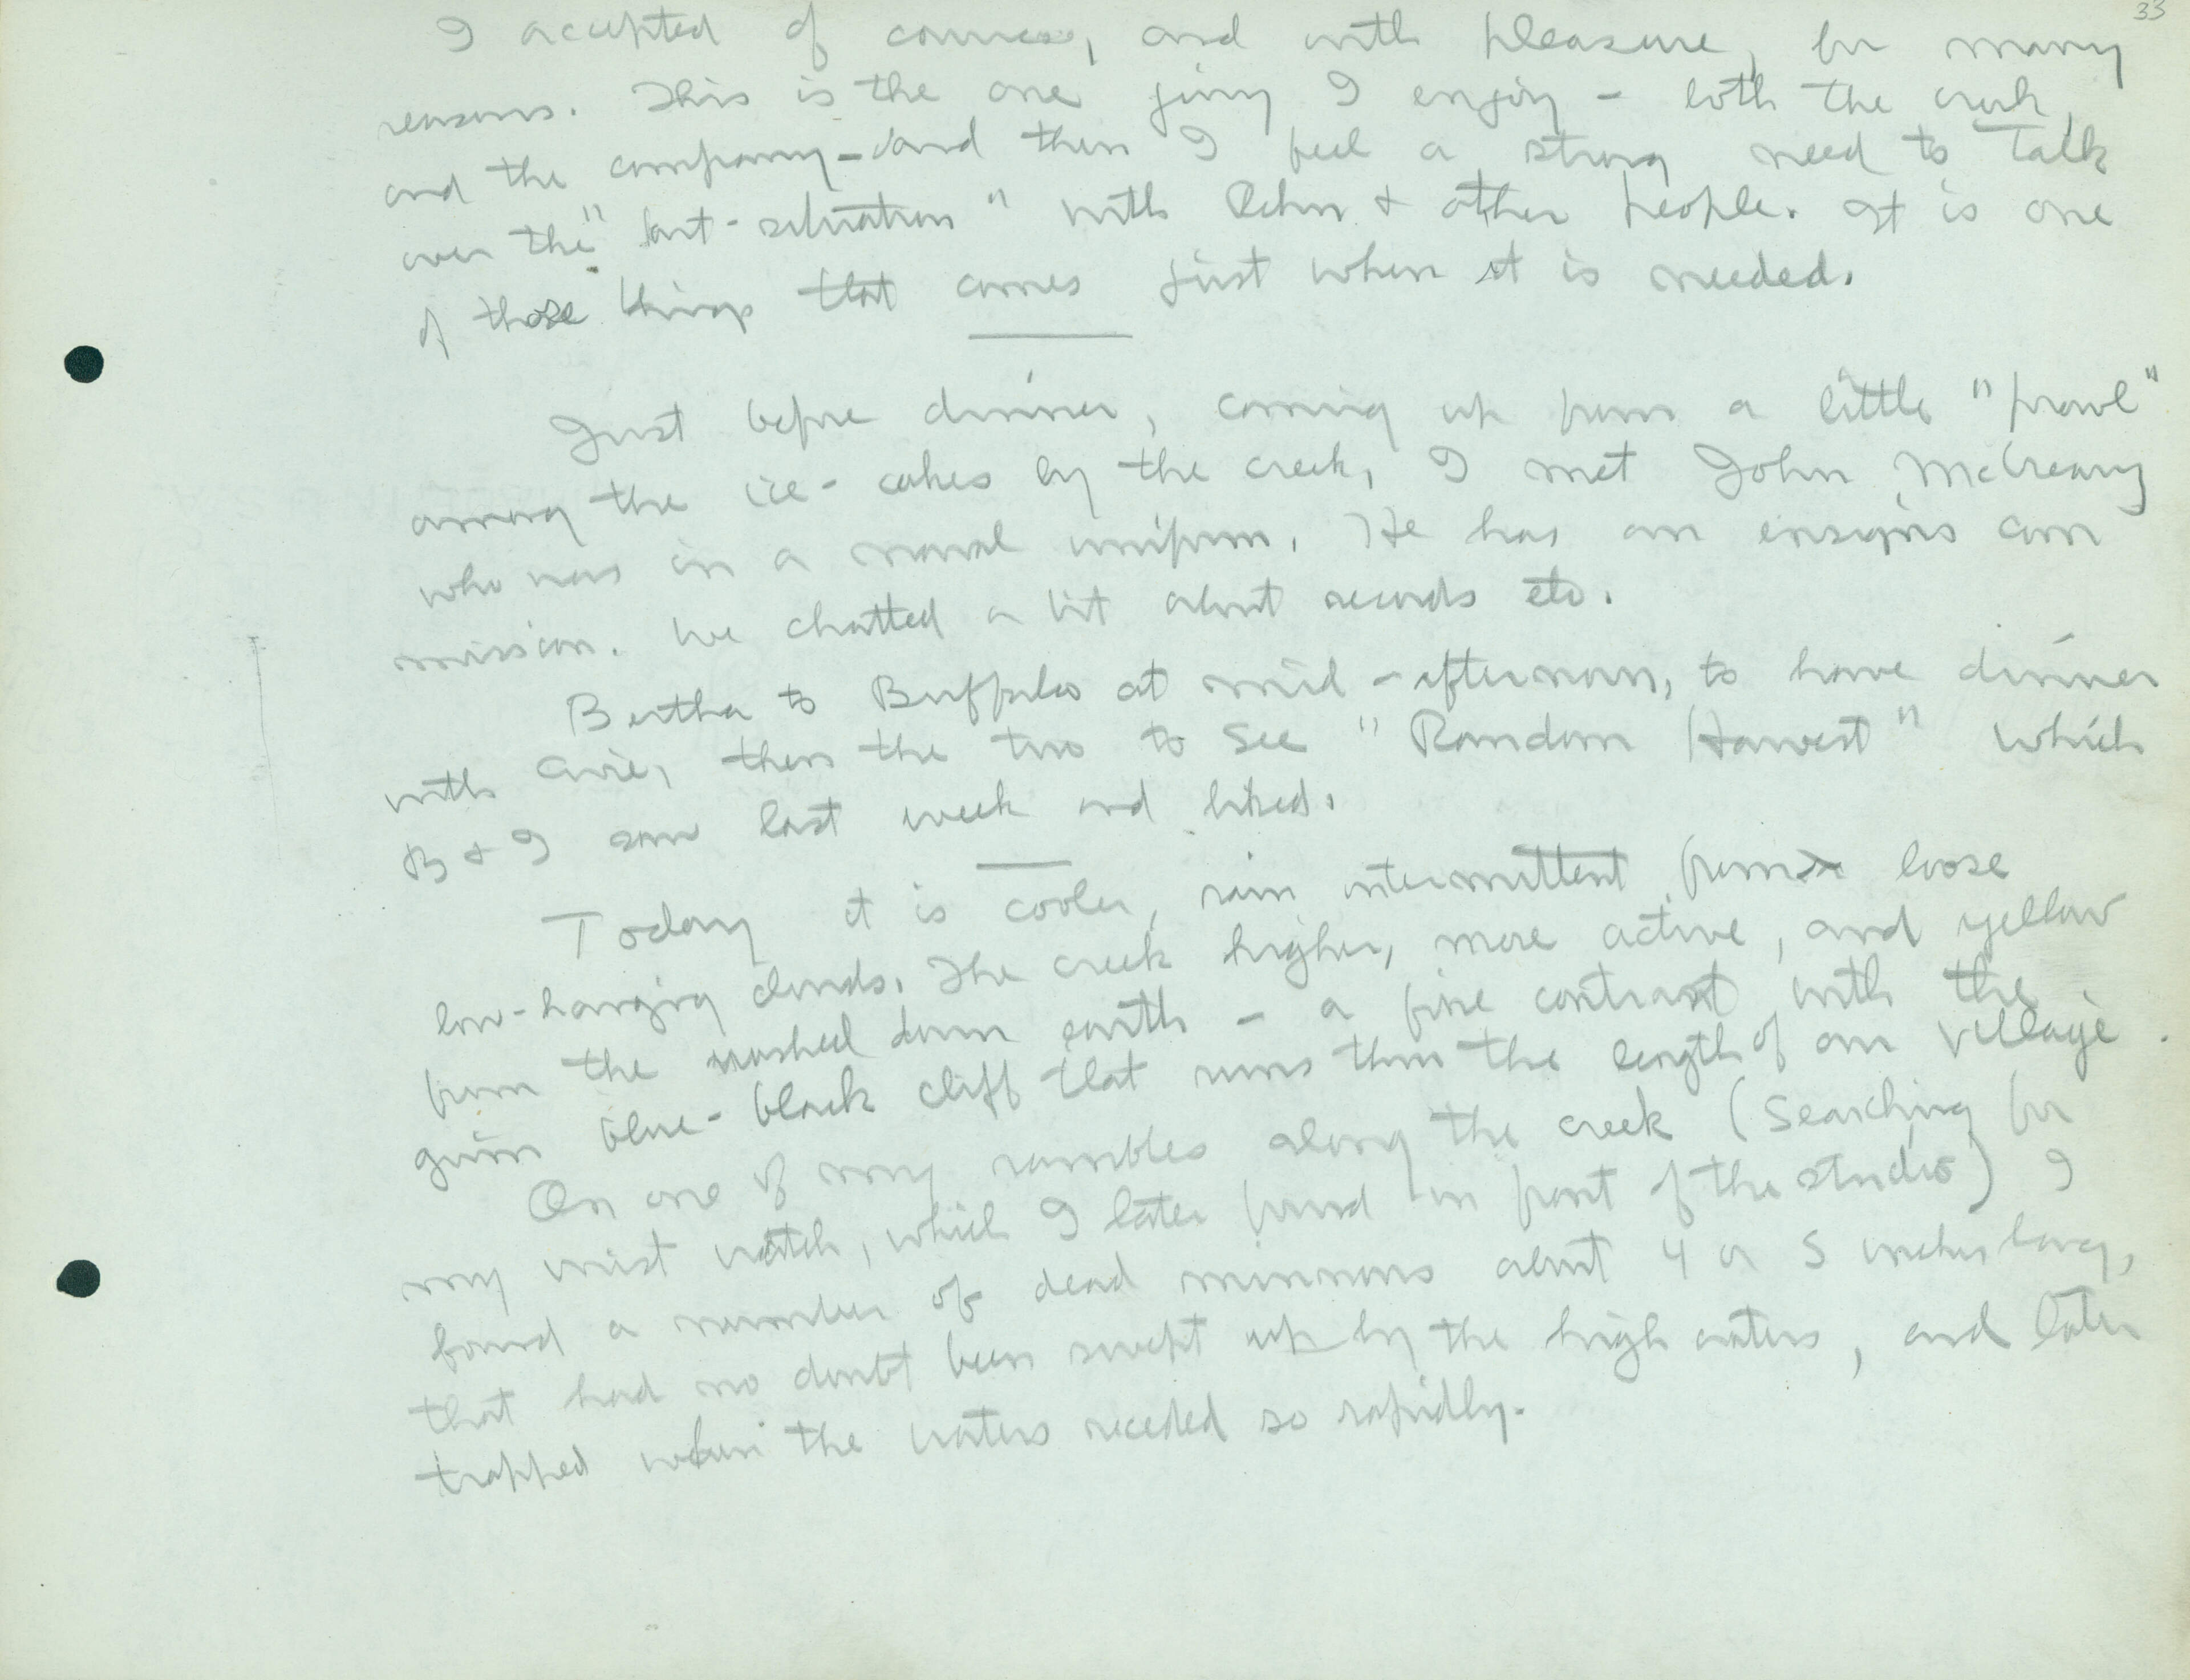 33
I accepted of course, and with pleasure, for many
reasons. This is the one jury I enjoy - both the work,
and the company - and then I feel a strong need to talk
over the "art-situation" with Rehn & other people. It is one
of those things that comes just when it is needed.
Just before dinner, coming up from a little "prowl"
among the ice-cakes by the creek, I met John McCreary
who was in a naval uniform. He has an ensigns com
mission. We chatted a bit about records etc.
Bertha to Buffalo at mid-afternoon, to have dinner
with then the two to see "Random Harvest" which
B & I saw last week and liked.
Today it is cooler, rain intermittent from loose
low-hanging clouds. The creek higher, more active, and yellow
from the washed down earth - a fine contrast with the
grim blue-black cliff that runs thru the length of our village.
On one of my rambles along the creek (searching for
my wrist watch, which I later found in front of the studio) I
found a number of dead minnows about 4 or 5 inches long,
that had no doubt been swept up by the high waters, and later
trapped when the waters receded so rapidly.